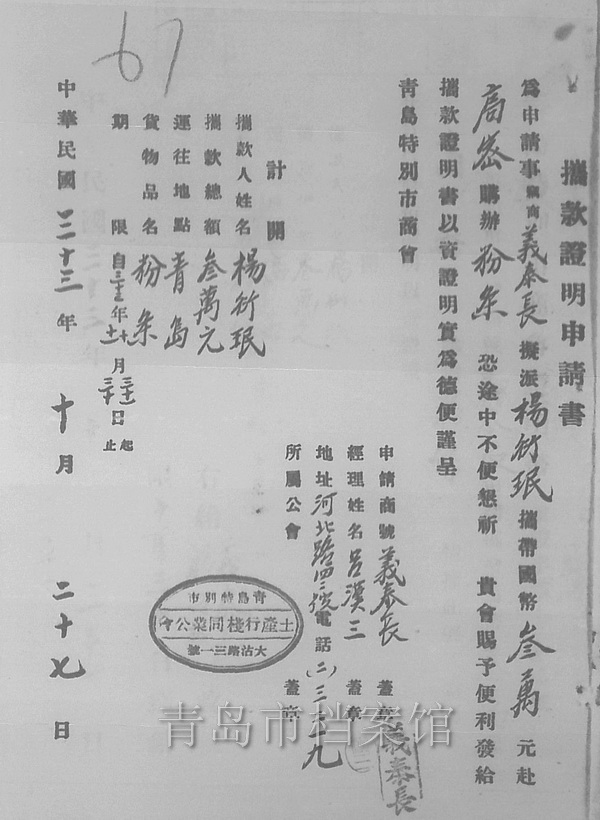 67
攜款證明申請書
爲申請事竊商義泰長擬派楊竹珉攜帶國幣叁萬元赴
高密購辦粉条恐途中不便懇祈 貴會賜予便利發給
攜款證明書以資證明實爲德便謹呈
青島特別市商會
申請商號義泰長 蓋章
經理姓名呂漢三 蓋章
地址河北路四號電話(二)三六九
所屬公會 蓋章
義泰長
計開
攜款人姓名楊竹珉
攜款總額叁萬元
運往地點青島
貨物品名粉条
期限自三十三年十月日起止
中華民國三十三年十月二十七日
青島特別市
土產行棧同業公會
大沽路三一號
青岛市档案馆